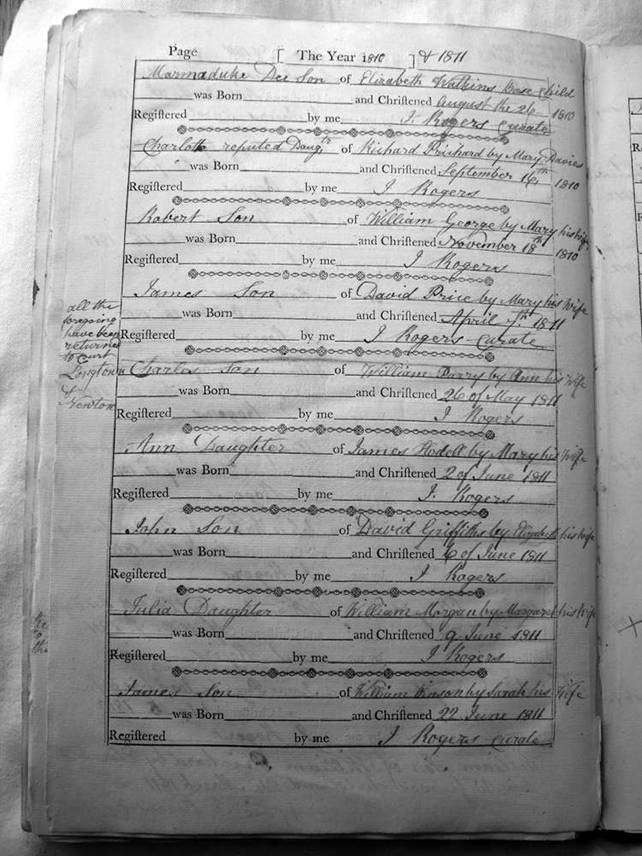 Page [ The Year 1810 ] & 1811
Marmaduke Dee Son of Elizabeth Watkins Base Child
was Born and Chriſtened August the 26 1810
Regiſtered by me J. Rogers Curate
Charlotte reputed Daugtr of Richard Prichard by Mary Davies
was Born and Chriſtened September 16th 1810
Regiſtered by me J Rogers
Robert Son of William George by Mary his Wife
was Born and Chriſtened November 18th 1810
Regiſtered by me J Rogers
James Son of David Price by Mary his Wife
was Born and Chriſtened April 7th 1811
Regiſtered by me J Rogers Curate
all the
foregoing
have been
returned
to Court
Longtown
&
Newton
Charles Son of William Parry by Ann his Wife
was Born and Chriſtened 26 of May 1811
Regiſtered by me J Rogers
Ann Daughter of James by Mary his Wife
was Born and Chriſtened 2 of June 1811
Regiſtered by me J. Rogers
John Son of David Griffiths by Elizabeth his Wife
was Born and Chriſtened 6 of June 1811
Regiſtered by me J Rogers
Julia Daughter of William Morgan by Margaret his Wife
was Born and Chriſtened 9 June 1811
Regiſtered by me J Rogers
James Son of William by Sarah his Wife
was Born and Chriſtened 22 June 1811
Regiſtered by me J Rogers Curate